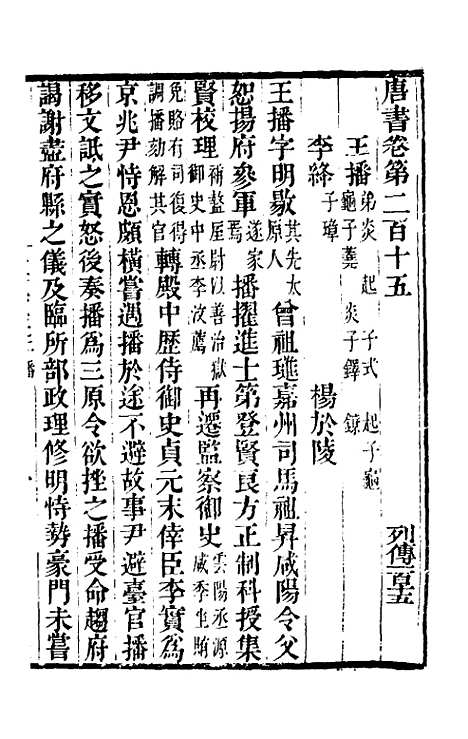 唐書卷第二百十五 列傳一百五十五
王播 弟炎 起 子式 起子龜 龜子蕘 炎子鐸 鐐
李絳 子璋 楊於陵
王播字明敭其先太原人曾祖璡嘉州司馬祖昇咸陽令父
恕揚府參軍遂家焉播擢進士第登賢良方正制科授集
賢校理補盩厔尉以善治獄御史中丞李汶薦再遷監察御史雲陽丞源咸季坐賄
免賂有司復得調播劾解其官轉殿中歷侍御史貞元末倖臣李實爲
京兆尹恃恩頗橫嘗遇播於途不避故事尹避臺官播
移文詆之實怒後奏播爲三原令欲挫之播受命趨府
謁謝盡府縣之儀及臨所部政理修明恃勢豪門未嘗